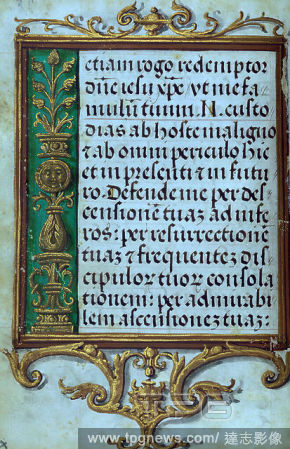 etiam rogo redemptor
dn̄e iesu xp̄e vt me fa
mulum̄ tuum. N. custo
dias ab hoste maligno
⁊ ab omni periculo hic
et in presenti ⁊ in futu
ro. Defende me per des
censionē tuaz ad infe
ros: per resurrectionē
tuaz ⁊ frequētez dis
cipulor̄ tuor̄ consola
tionem: per admirabi
lem ascensionez tuaz:
www.tpgnews.com/ 達志影像